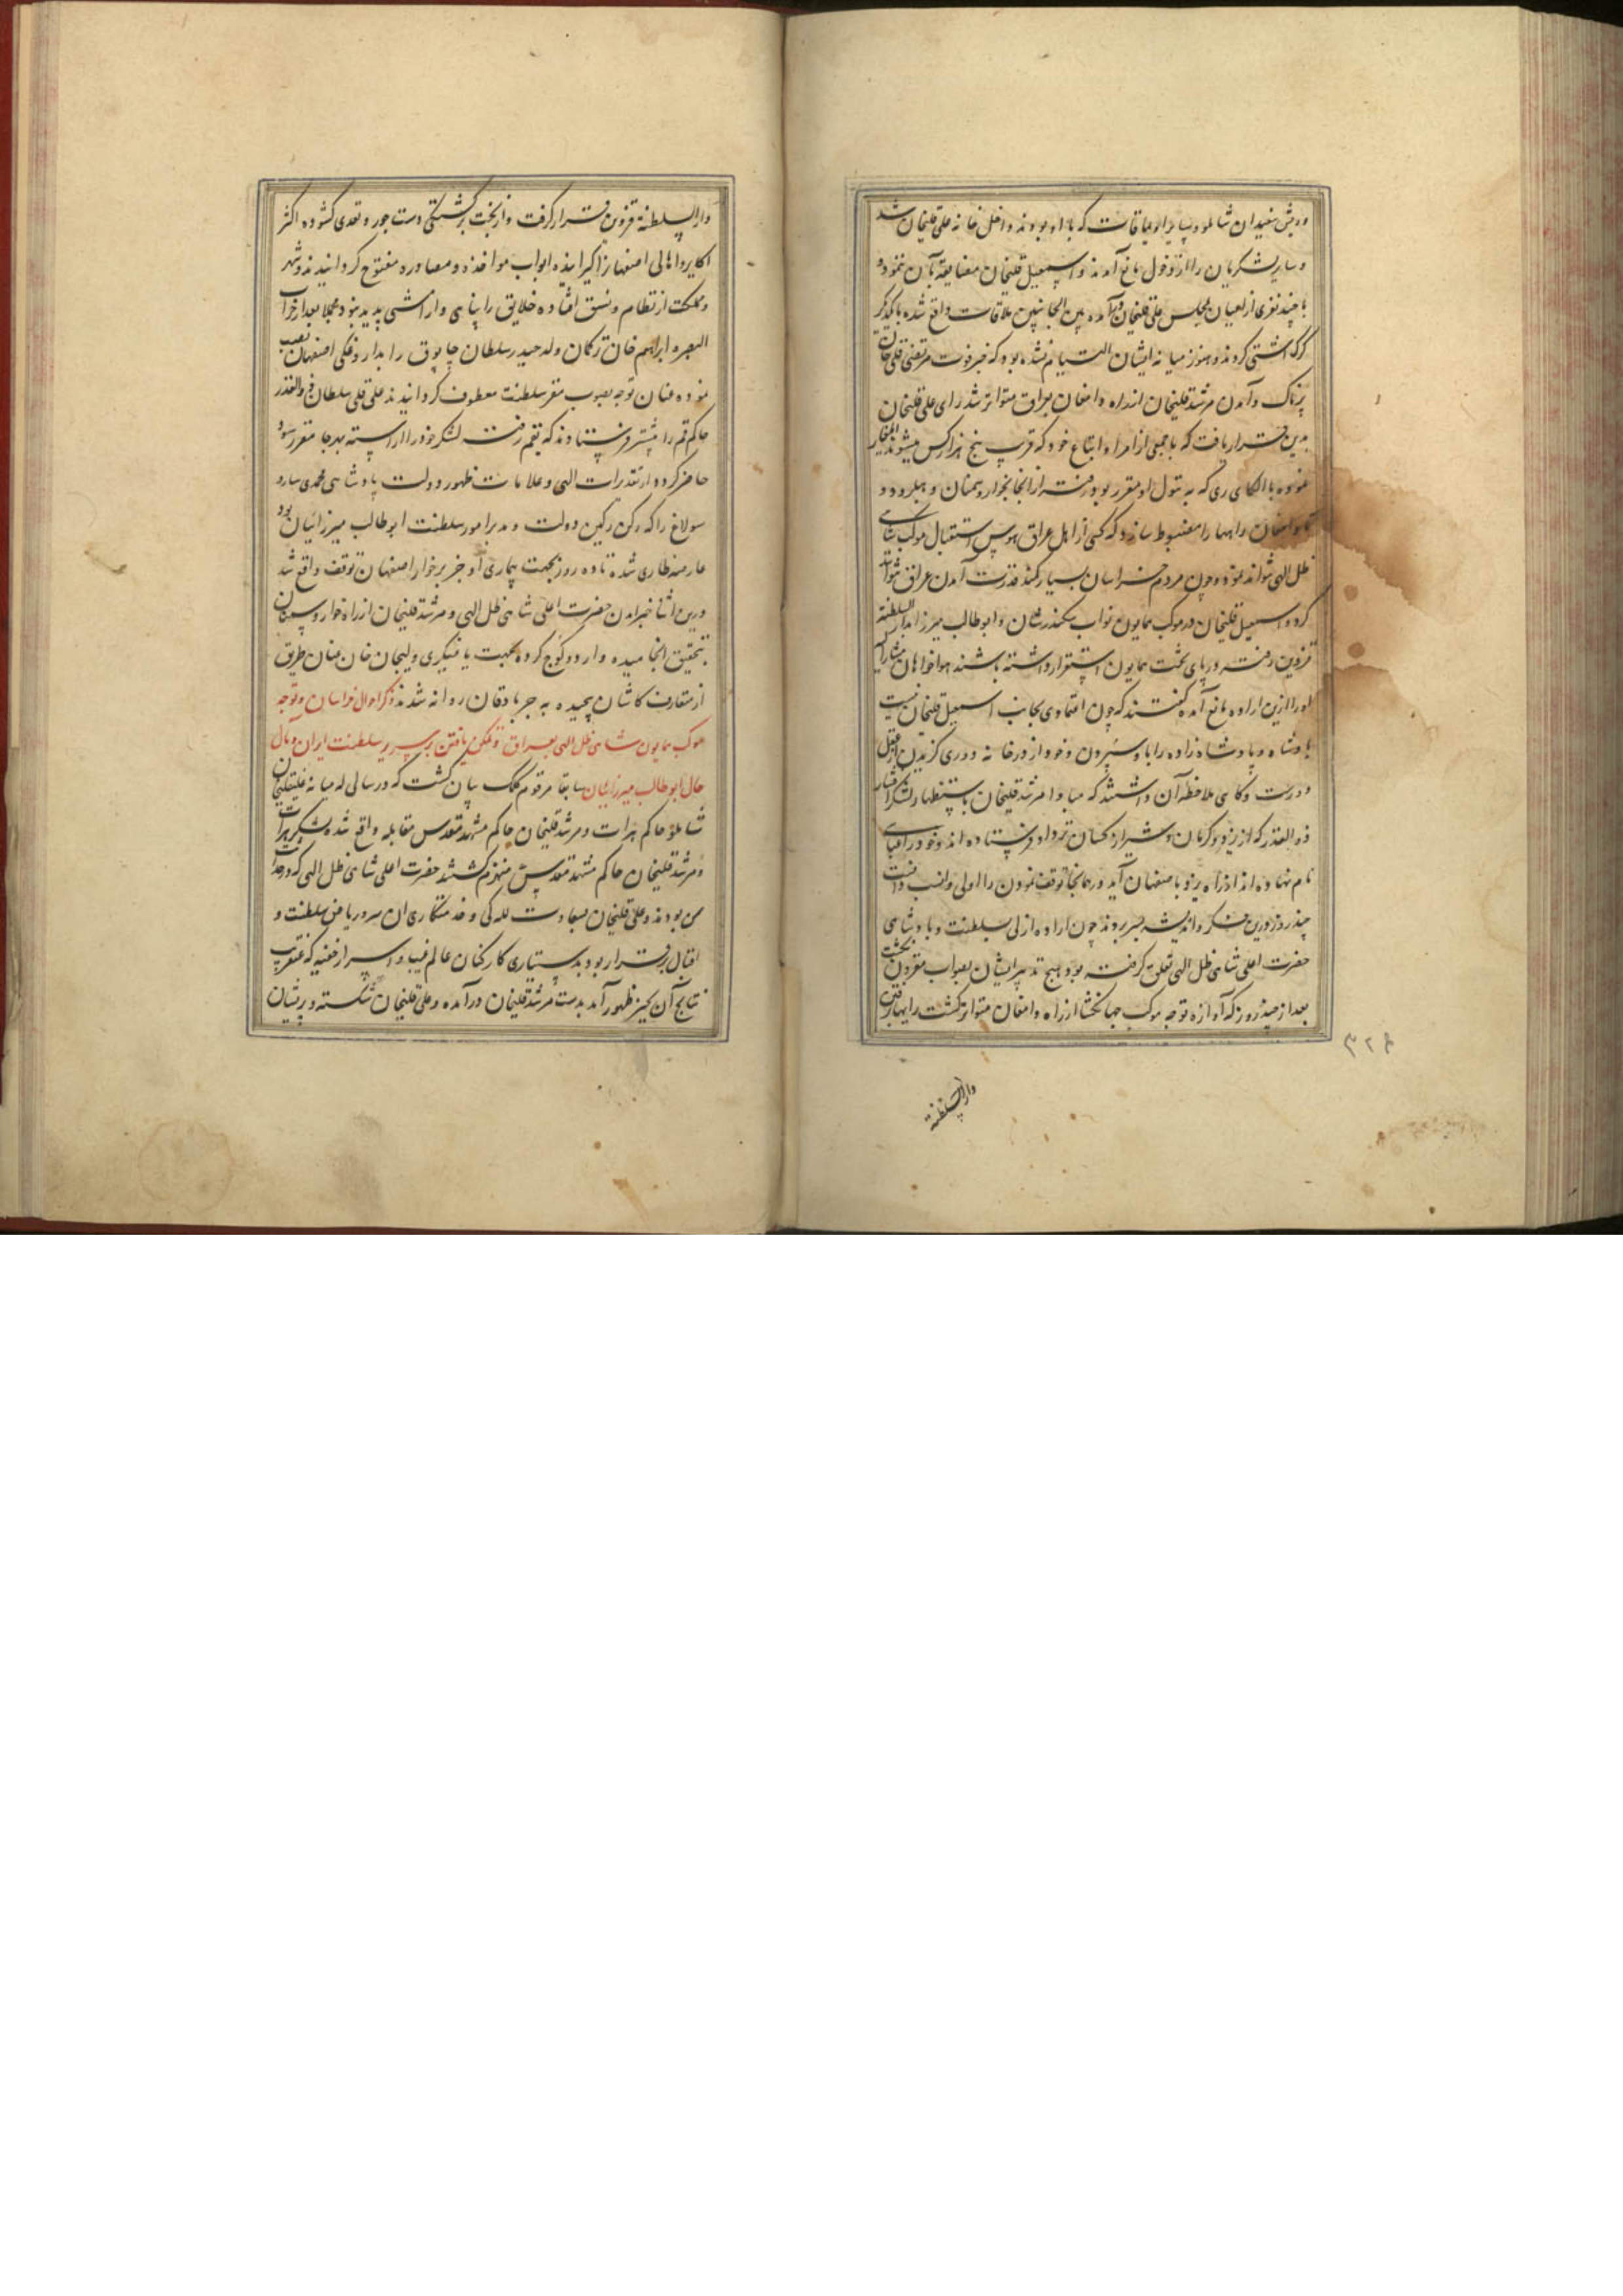 و ریش سفیدان شاملو و سایر اویماقات که با او بودند داخل خانه علی قلیخان شد
و سایر لشکریان را از دخول مانع آمدند و اسمعیل قلیخان مضایقه بآن ننموده
با چند نفری از اعیان بمجلس علی قلیخان درآمده بین الجانبین ملاقات واقع شده با یکدیگر
گرگ آشتی کردند و هنوز میانه ایشان التیام نشده بود که خبر فوت مرتضی قلی خان
پرناک و آمدن مرشد قلیخان از راه دامغان بعراق متواتر شد رای علی قلیخان
بدین قرار یافت که با جمعی از امرا و اتباع خود که قریب پنج هزار کس میشوند ایلغار
نموده با الکای ری که به تیول او مقرر بود رفته از آنجا بخوار و سمنان و هبلرود و
تا دامغان راهها را مضبوط سازد که کسی از اهل عراق هوس استقبال موکب شاهی
ظل الهی نتواند نمود و چون مردم خراسان بسیار کمند قدرت آمدن عراق نتوانند
کرد و اسمعیل قلیخان در موکب همایون نواب سکندرشان و ابوطالب میرزا بدار السلطنه
قزوین رفته در پای تخت همایون استقرار داشته باشند هواخواهان مشارالیه
او را ازین اراده مانع آمده گفتند که چون اعتمادی بجانب اسمعیل قلیخان نیست
پادشاه و پادشاه زاده را باو سپردن و خود از درخانه دوری گزیدن از عقل
دورست و گاهی ملاحظه آن داشتند که مبادا مرشد قلیخان باستظهار لشکر افشار
ذو القدر که از یزد و کرمان و شیراز کسان نزد او فرستاده اند و خود را عباسی
نام نهاده اند از راه یزد باصفهان آید در همانجا توقف نمودن را اولی و انسب دانست
چند روز درین فکر و اندیشه بسر بردند چون اراده ازلی بسلطنت و پادشاهی
حضرت اعلی شاهی ظل الهی تعلق گرفته بود هیچ تدبیر ایشان بصواب مقرون نگشت
بعد از چند روز که آوازه توجه موکب جهانگشا از راه دامغان متواتر گشت رایها برفتن
دار السلطنه
۳۲۶
دار السلطنه قزوین قرار گرفت و از بخت برگشتگی دست جور و تعدی گشوده اکثر
اکابر و اهالی اصفهان را گیرانیده ابواب مواخذه و مصادره مفتوح گردانیدند و شهر
و مملکت از نظام و نسق افتاده خلایق را پناهی و آرامشی پدید نبود مجملا بعد از خراب
البصره ابراهیم خان ترکمان ولد حیدر سلطان چابوق را بداروغگی اصفهان نصب
نموده عنان توجه بصوب مقر سلطنت معطوف گردانیدند علی قلی سلطان ذو القدر
حاکم قم را پیشتر فرستادند که بقم رفته لشکر خود را آراسته بهر جا مقرر شود
حاضر گردد از تقدیرات الهی و علامات ظهور دولت پادشاهی محمدی سارو
سولاغ را که رکن رکین دولت و مدبر امور سلطنت ابوطالب میرزائیان بود
عارضه طاری شده تا ده روز بجهت بیماری او در برخوار اصفهان توقف واقع شد
درین اثنا خبر آمدن حضرت اعلی شاهی ظل الهی و مرشد قلیخان از راه خوار و سمنان
بتحقیق انجامیده و اردو کوچ کرده بجهت یاغیگری ولیجان خان عنان طریق
از متعارف کاشان پیچیده به جرباذقان روانه شدند ذکر احوال خراسان و توجه
موکب همایون شاهی ظل الهی بعراق و تمکن یافتن بر سریر سلطنت ایران و مآل
حال ابوطالب میرزائیان سابقا مرقوم کلک بیان گشت که در سالی که میانه علیقلیخان
شاملو حاکم هرات و مرشد قلیخان حاکم مشهد مقدس مقابله واقع شده لشکر هرات
و مرشد قلیخان حاکم مشهد مقدس منهزم گشتند حضرت اعلی شاهی ظل الهی که در هرات
می بودند و علی قلیخان بسعادت للگی و خدمتکاری آن سرو ریاض سلطنت و
اقبال سرافراز بود بدستیاری کارکنان عالم غیب و اسرار خفیه که عنقریب
نتایج آن بحیز ظهور آمد بدست مرشد قلیخان درآمده و علی قلیخان شکسته و پریشان